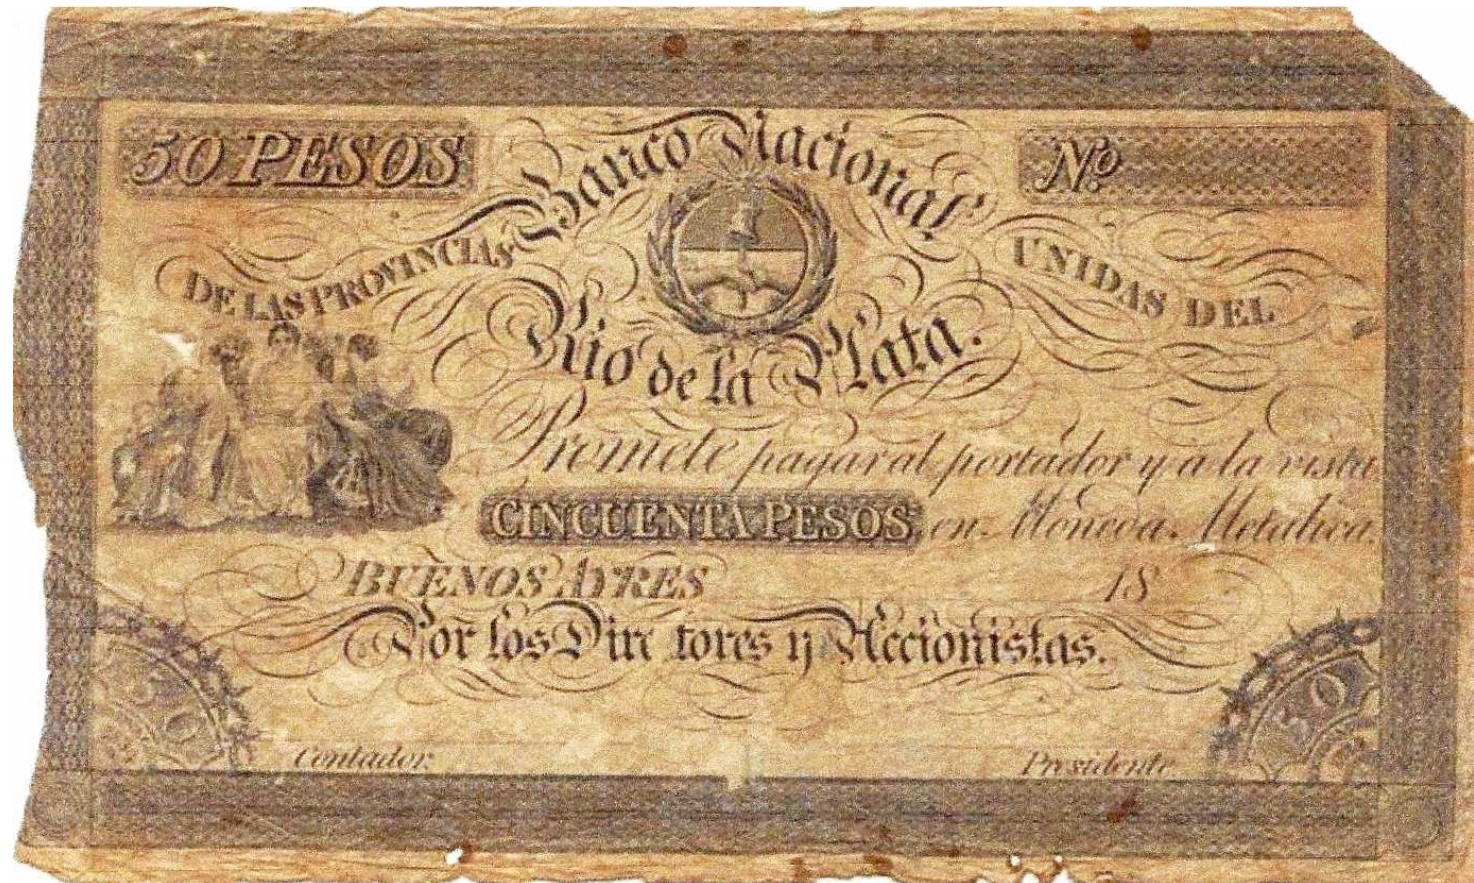 50 PESOS
Banco Nacional
Nº
DE LAS PROVINCIAS
UNIDAS DEL
Rio de la Plata.
Promete pagar al portador y a la vista
CINCUENTA PESOS en Moneda Metalica.
BUENOS AYRES 18
Por los Directores y Accionistas.
50
50
Contador
Presidente